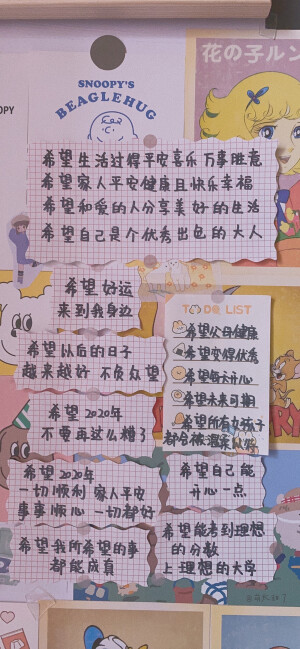 SNOOPY'S
BEAGLEHUG
OPY
花の子ルン
希望生活过得平安喜乐 万事胜意
希望家人平安健康且快乐幸福
希望和爱的人分享美好的生活
希望自己是个优秀出色的大人
希望好运
来到我身边
TO DO LIST
希望父母健康
希望变得优秀
希望每天开心
希望未来可期
希望所有女孩子
都会被温柔以待
希望以后的日子
越来越好 不负众望
希望 2020年
不要再这么糟了
希望自己能
开心一点
希望 2020年
一切顺利 家人平安
事事顺心 一切都好
希望能考到理想
的分数
上理想的大学
希望我所希望的事
都能成真